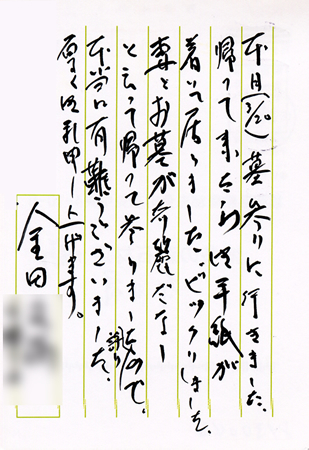 本日(3/20)墓参りに行きました。
帰って来たら御手紙が
着いて居りましたビックリしました。
妻とお墓が奇麗だなー
と云って帰って参りましたので。
本当に有難うございました。
厚く御礼申し上げます。
金田